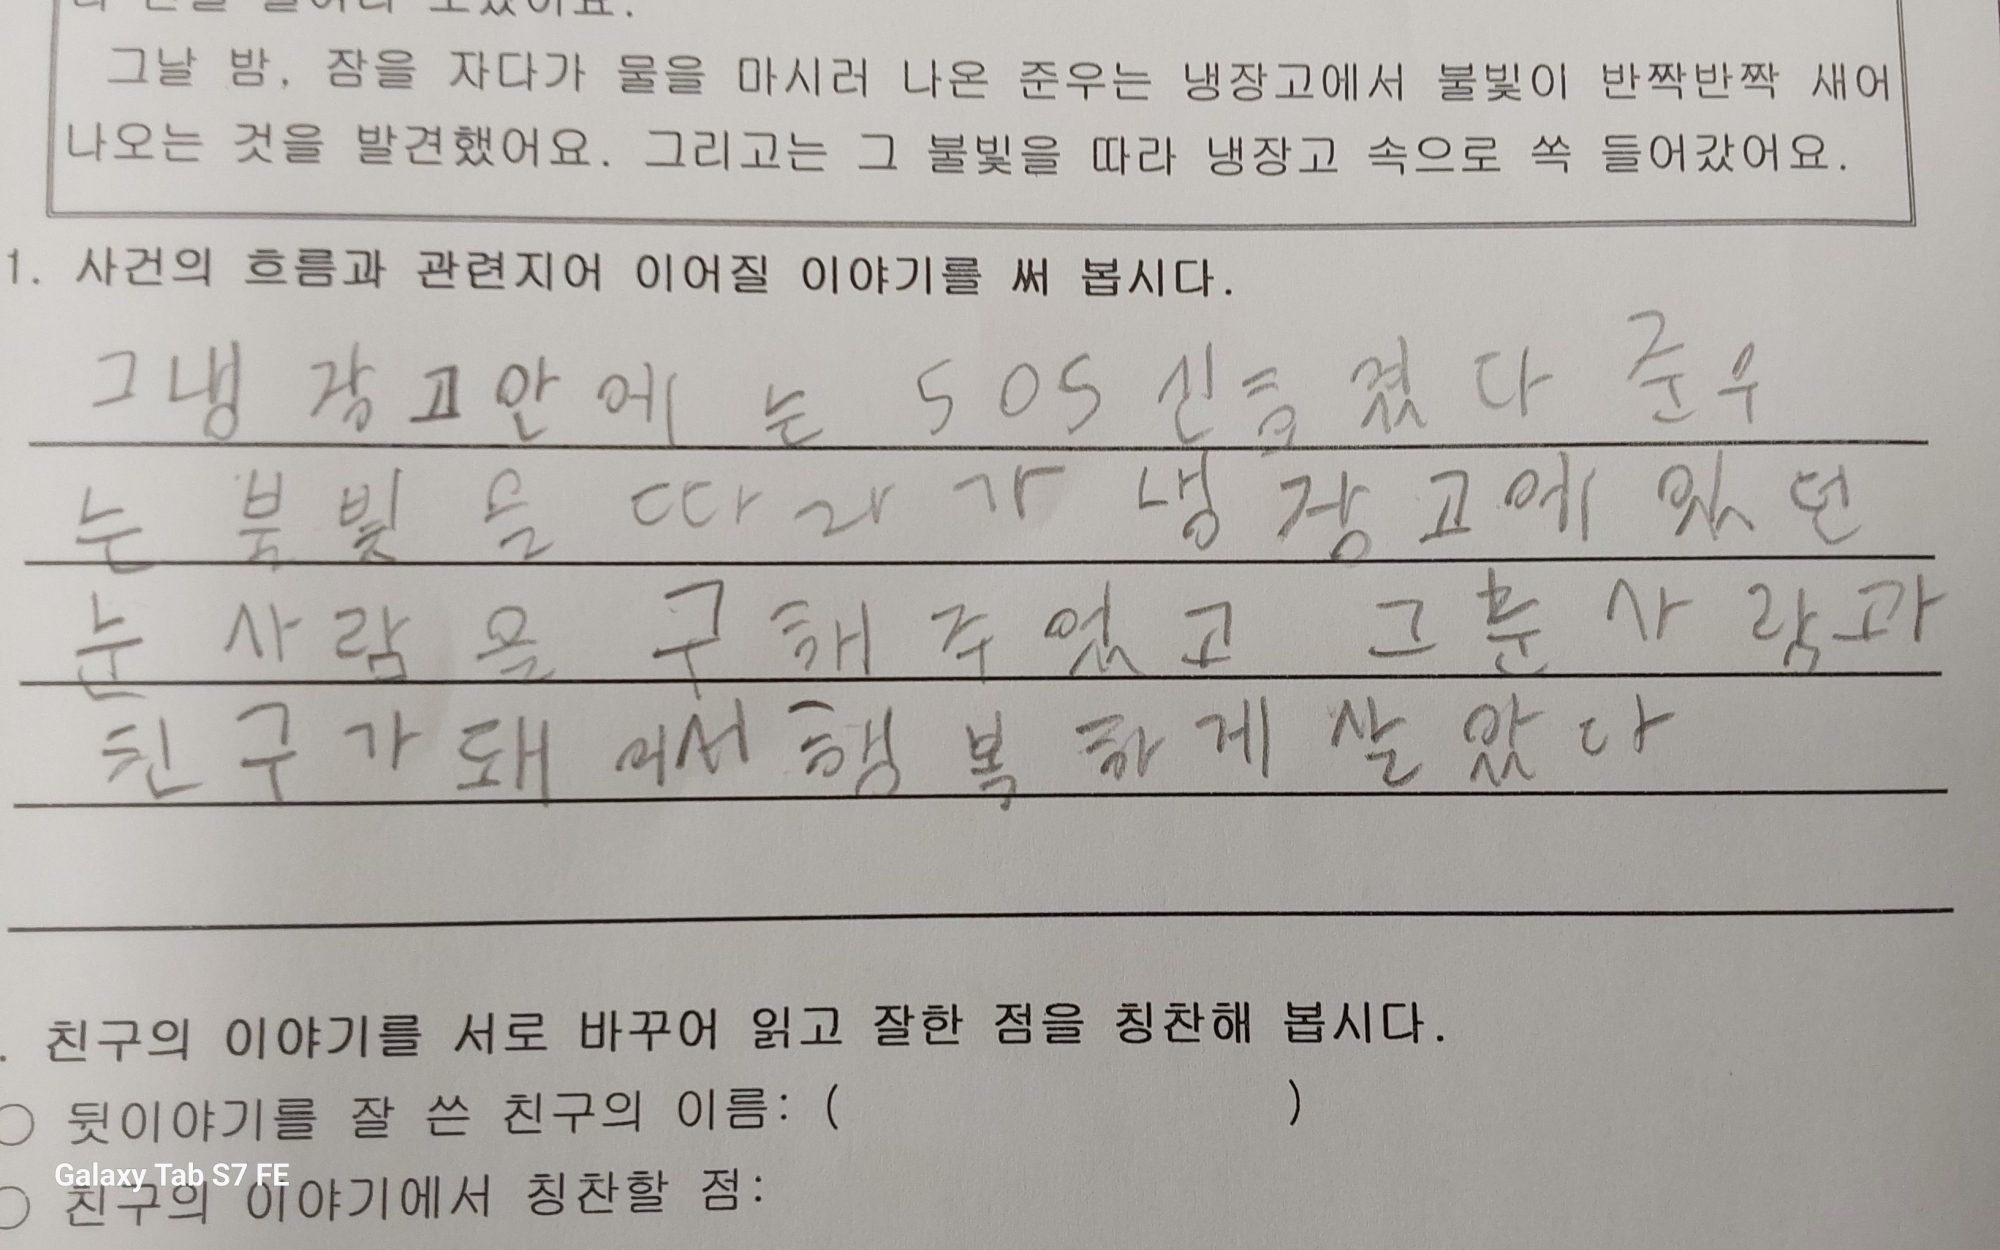 그날 밤, 잠을 자다가 물을 마시러 나온 준우는 냉장고에서 불빛이 반짝반짝 새어
나오는 것을 발견했어요. 그리고는 그 불빛을 따라 냉장고 속으로 쏙 들어갔어요.
1. 사건의 흐름과 관련지어 이어질 이야기를 써 봅시다.
그냉장고안에는 SOS신흠켰다 준우
는 북빛을 따라가 냉장고에있던
눈사람을 구해주었고 그훈사람과
친구가돼어서행복하게살았다
. 친구의 이야기를 서로 바꾸어 읽고 잘한 점을 칭찬해 봅시다.
○ 뒷이야기를 잘 쓴 친구의 이름: ( )
○ 친구의 이야기에서 칭찬할 점:
Galaxy Tab S7 FE